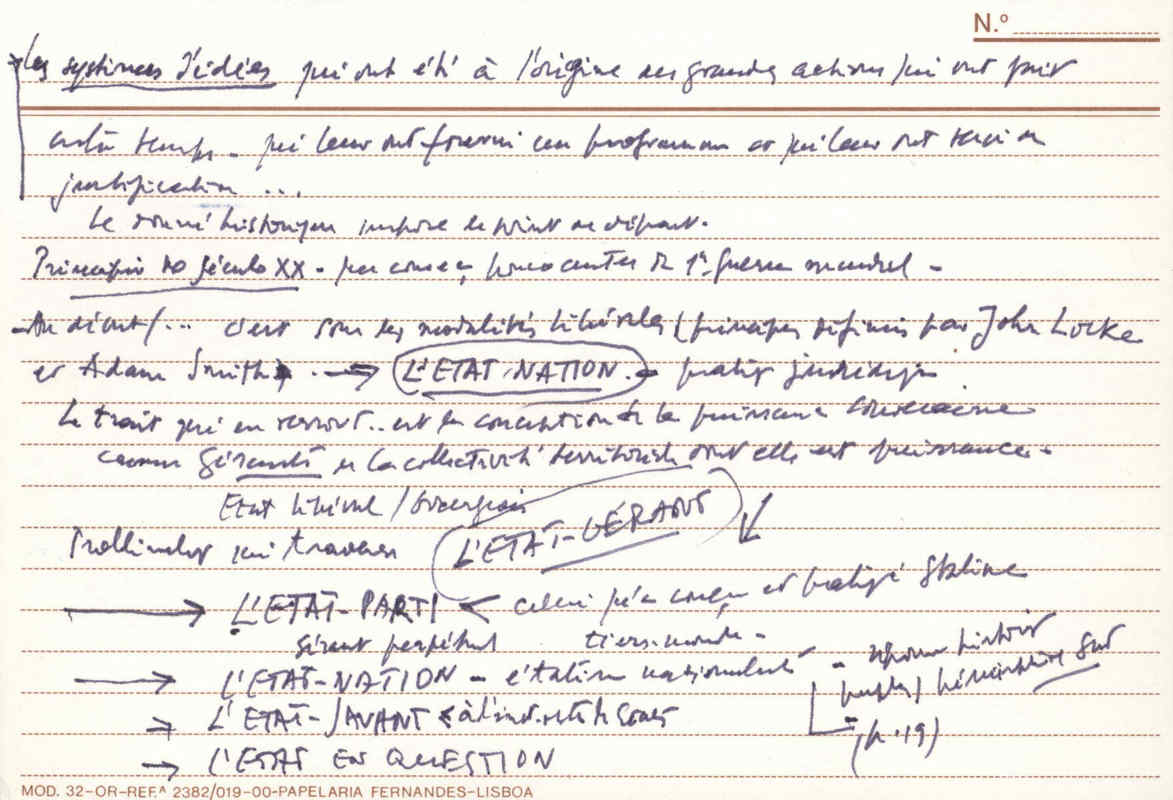 N.º
Les systèmes d'idées qui ont été à l'origine des grandes actions qui ont fait
notre temps - qui leur ont fourni un programme et qui leur ont servi
justification ...
Le donné historique impose le point de départ.
Princípio do século XX - 1ª guerra mundial -
- Au début/... c'est sous ses modalités libérales (principes définis par John Locke
et Adam Smith) → L'ETAT-NATION - juridique
Le trait qui en ressort .. est la conception de la puissance souveraine
comme Gérante de la collectivité territoriale dont elle est puissance.
Etat libéral / bourgeois
L'ETAT-GÉRANT
→ L'ETAT-PARTI < celui qu'a conçu et pratiqué Staline
Gérant perpétuel tiers-monde -
→ L'ETAT-NATION - étatisme nationalitaire
→ L'ETAT-SAVANT
→ L'ETAT EN QUESTION
Sud
(p. 19)
MOD. 32-OR-REF.ᴬ 2382/019-00-PAPELARIA FERNANDES-LISBOA